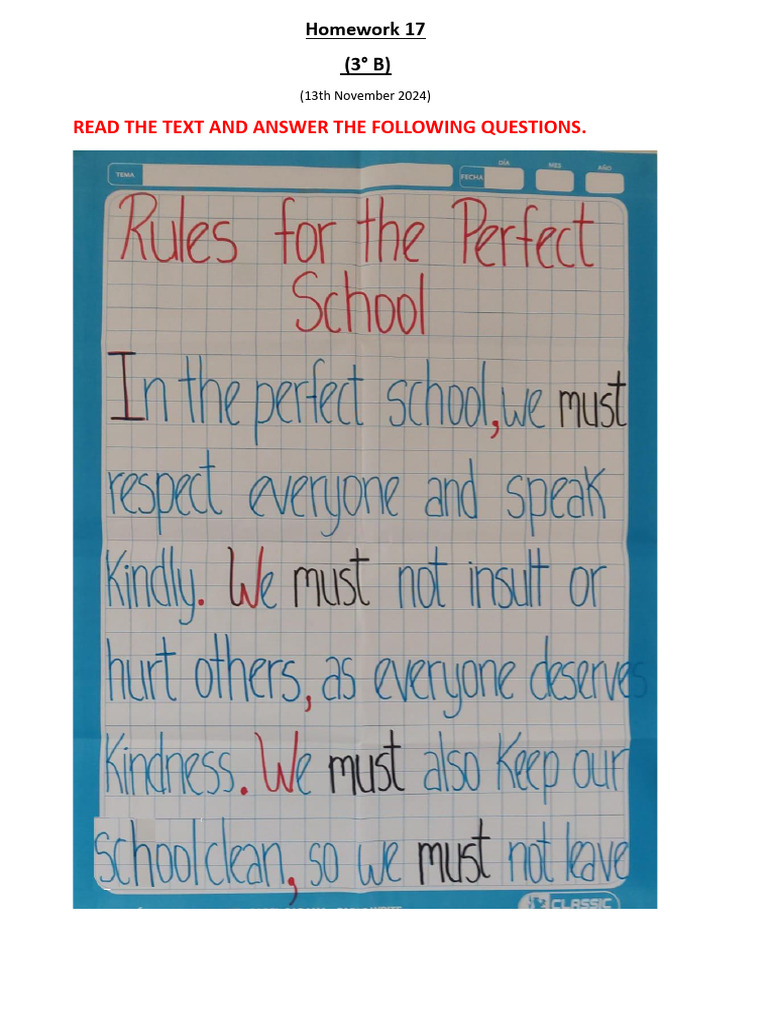 Homework 17
(3° B)
(13th November 2024)
READ THE TEXT AND ANSWER THE FOLLOWING QUESTIONS.
TEMA
FECHA
DÍA
MES
AÑO
Rules for the Perfect
School
In the perfect school, we must
respect everyone and speak
Kindly. We must not insult or
hurt others, as everyone deserves
Kindness. We must also Keep our
school clean, so we must not leave
CLASSIC